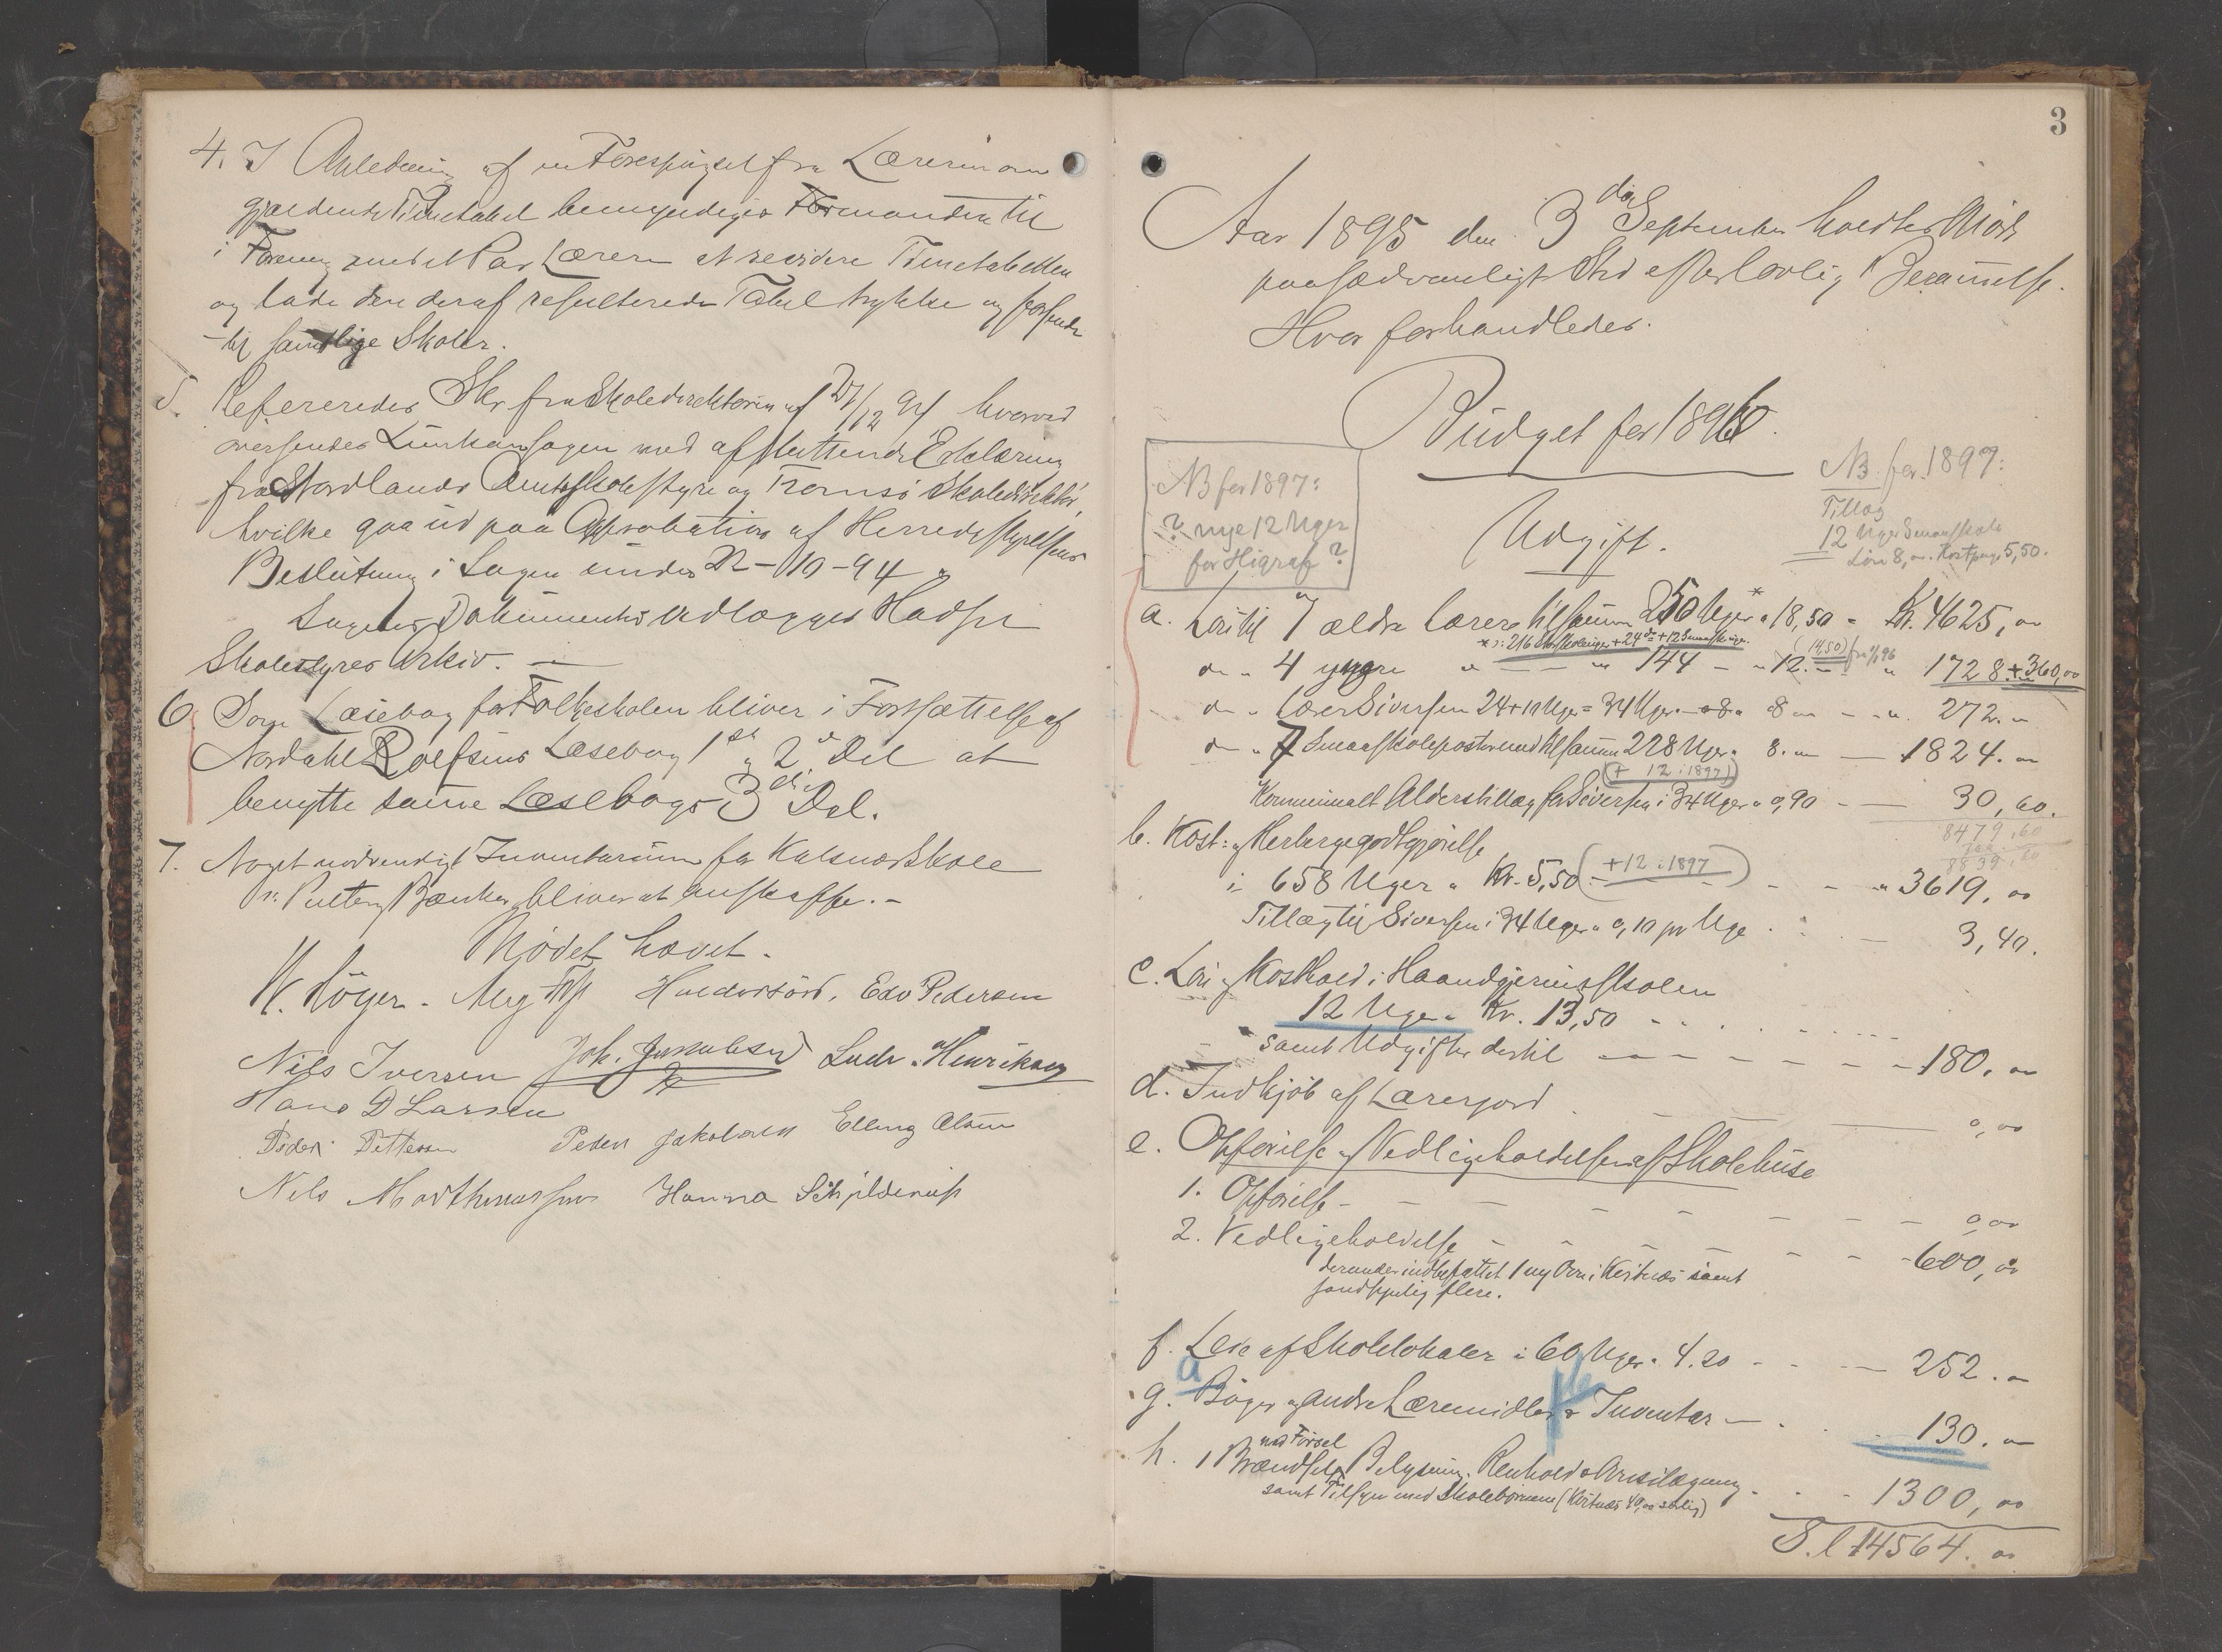 4. I Anledning af en Forespørgsel fra Lærerin om
gjældende Timetabel bemyndiges Formanden til
i Forening med et Par Lærere at revidere Timetabellen
og lade den deraf resulterede Tabel trykke og forsende
til samtlige Skoler.
5. Refereredes Skr fra Skoledirektøren af 27/12 94, hvorved
oversendes sagen med afsluttende Erklæring
fra Nordlands Amtsskolestyre og Tromsø Skoledirektør,
hvilke gaa ud paa Approbation af Herredsstyrelsens
Beslutning i Sagen under 22-10-94.
Sagens Dokumenter vedlægges Hadsel
Skolestyres Arkiv. —
6 Som Læsebog for Folkeskolen bliver i Fortsættelse af
Nordahl Rolfsens Læsebog 1ste og 2den Del at
benytte samme Læsebogs 3die Del.
7. Noget nødvendigt Inventarium for Kalsnæs Skole
Pulter og Bænker, bliver at anskaffe. -
Mødet hævet.
W. Höyer. Haldorsörd. Edv Pedersen
Nils Iversen Joh. Jakobsen Ludv. Henriksen
Hans D Larsen
Peder Pettersen Peder Jakobsen Elling Olsen
Nils Marthinussen Hanna Schjelderup
3
Aar 1895 den 3die September holdtes Møde
paa sædvanligt Sted efter lovlig Berammelse.
Hvor forhandledes.
Budget for 1896.
NB for 1897:
? nye 12 Uger
for Higraf?
NB. for 1897:
Tillæg
12 Uger Smaaskole
Løn 8,00. Kostpenge 5,50.
Udgift.
a. Løn til 7 ældre Lærere tilsammen 250 Uger* a 18,50 = Kr. 4625,00
* : 216 + 24 + 12 Smaaskuger.
(14,50) fra 1/1 96
do " 4 yngre " — " 144 - " 12. — " 1728 + 360,00
do " Lærer Siversen 24+10 Uger = 34 Uger — 8 00 — " 272. 00
do " 7 Smaaskoleposter med tilsammen 228 Uger a 8. 00 — 1824. 00
(+ 12 i 1897)
Kommunalt Alderstillæg for Siversen i 34 Uger a 0,90 - — 30,60.
8479,60
8839,60
b. Kost- og Herbergegodtgjørelse
i 658 Uger a Kr. 5,50 (+12 i 1897) - - " 3619,00
Tillæg til Siversen i 34 Uger a 0,10 pr Uge — 3,40.
c. Løn og Kosthold i Haandgjerningsskolen
12 Uger a Kr. 13,50
samt Udgifter dertil — 180,00
d. Indkjøb af Lærerjord — 0,00
e. Opførelse og Vedligeholdelsen af Skolehuse
1. Opførelse — 0,00
2. Vedligeholdelse — 600,00
derunder indbefattet 1 ny Ovn i Kvitnæs samt
sandsynlig flere.
f. Leie af Skolelokaler i 60 Uger a 4.20 — 252. 00
g. Bøger og andre Læremidler & Inventar — 130. 00
med Försel
h. Brændsel, Belysning, Renhold & Ovnsilægning - 1300,00
samt Tilsyn med Skolebørnene (Kvitnæs 40,00 særlig)
S. l 14564. 00